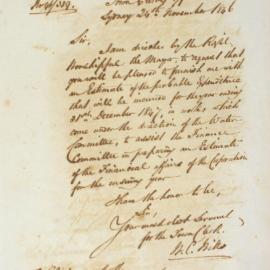 No 46/332
Sydney 24th November 1846
Sir,
I am directed by the Right
Worshipful the Mayor, to request that
you will be pleased to furnish me with
an Estimate of the probable Expenditure
that will be incurred for the year ending
31st December 1847, in works, which
come under the direction of the Water
Committee, to assist the Finance
Committee in preparing an Estimate
of the Financial affairs of the Corporation
for the ensuing year
I have the honor to be,
Sir,
Your most obedt Servant
for the Town Clerk